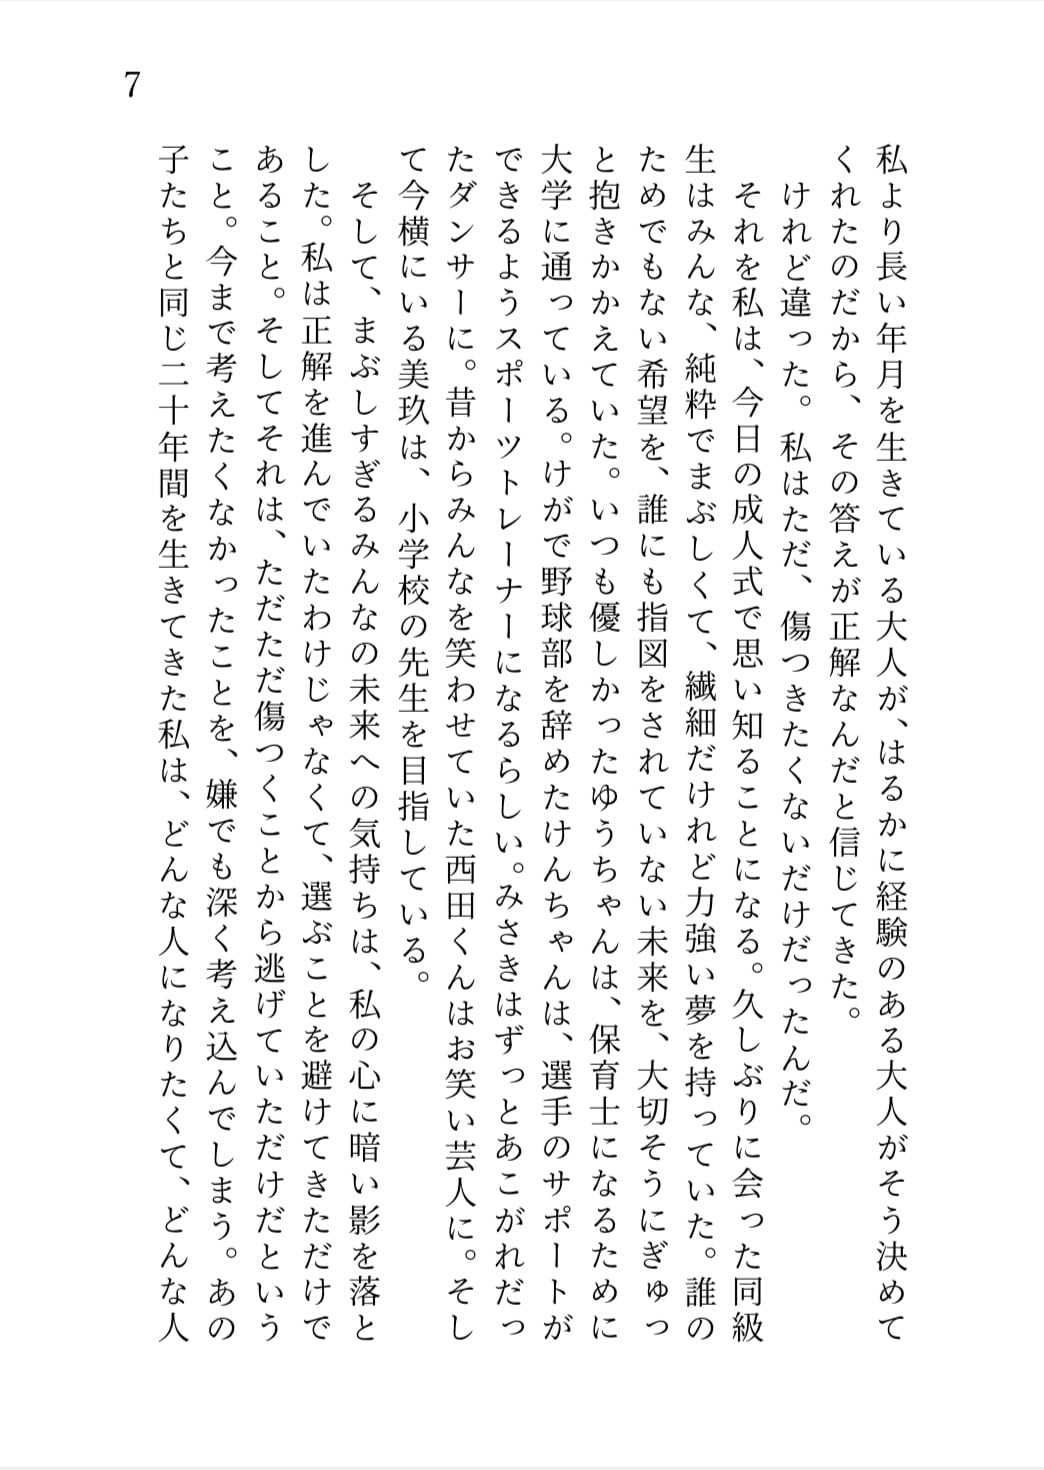 7
私より長い年月を生きている大人が、はるかに経験のある大人がそう決めて
くれたのだから、その答えが正解なんだと信じてきた。
けれど違った。私はただ、傷つきたくないだけだったんだ。
それを私は、今日の成人式で思い知ることになる。久しぶりに会った同級
生はみんな、純粋でまぶしくて、繊細だけれど力強い夢を持っていた。誰の
ためでもない希望を、誰にも指図をされていない未来を、大切そうにぎゅっ
と抱きかかえていた。いつも優しかったゆうちゃんは、保育士になるために
大学に通っている。けがで野球部を辞めたけんちゃんは、選手のサポートが
できるようスポーツトレーナーになるらしい。みさきはずっとあこがれだっ
たダンサーに。昔からみんなを笑わせていた西田くんはお笑い芸人に。そし
て今横にいる美玖は、小学校の先生を目指している。
そして、まぶしすぎるみんなの未来への気持ちは、私の心に暗い影を落と
した。私は正解を進んでいたわけじゃなくて、選ぶことを避けてきただけで
あること。そしてそれは、ただただ傷つくことから逃げていただけだという
こと。今まで考えたくなかったことを、嫌でも深く考え込んでしまう。あの
子たちと同じ二十年間を生きてきた私は、どんな人になりたくて、どんな人